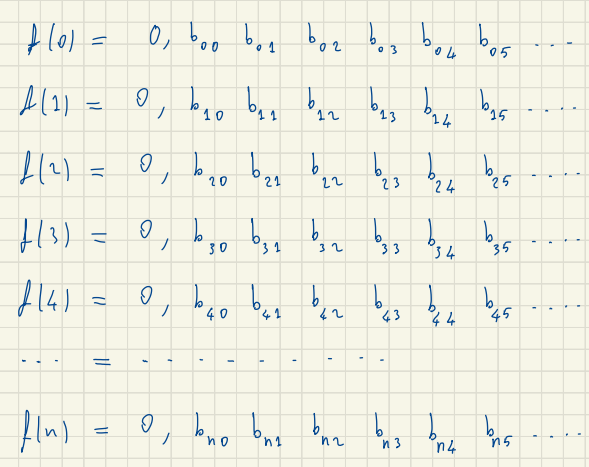 f(0) = 0, b₀₀ b₀₁ b₀₂ b₀₃ b₀₄ b₀₅ ....
f(1) = 0, b₁₀ b₁₁ b₁₂ b₁₃ b₁₄ b₁₅ ....
f(2) = 0, b₂₀ b₂₁ b₂₂ b₂₃ b₂₄ b₂₅ ....
f(3) = 0, b₃₀ b₃₁ b₃₂ b₃₃ b₃₄ b₃₅ ....
f(4) = 0, b₄₀ b₄₁ b₄₂ b₄₃ b₄₄ b₄₅ ....
... = .........
f(n) = 0, bₙ₀ bₙ₁ bₙ₂ bₙ₃ bₙ₄ bₙ₅ ....